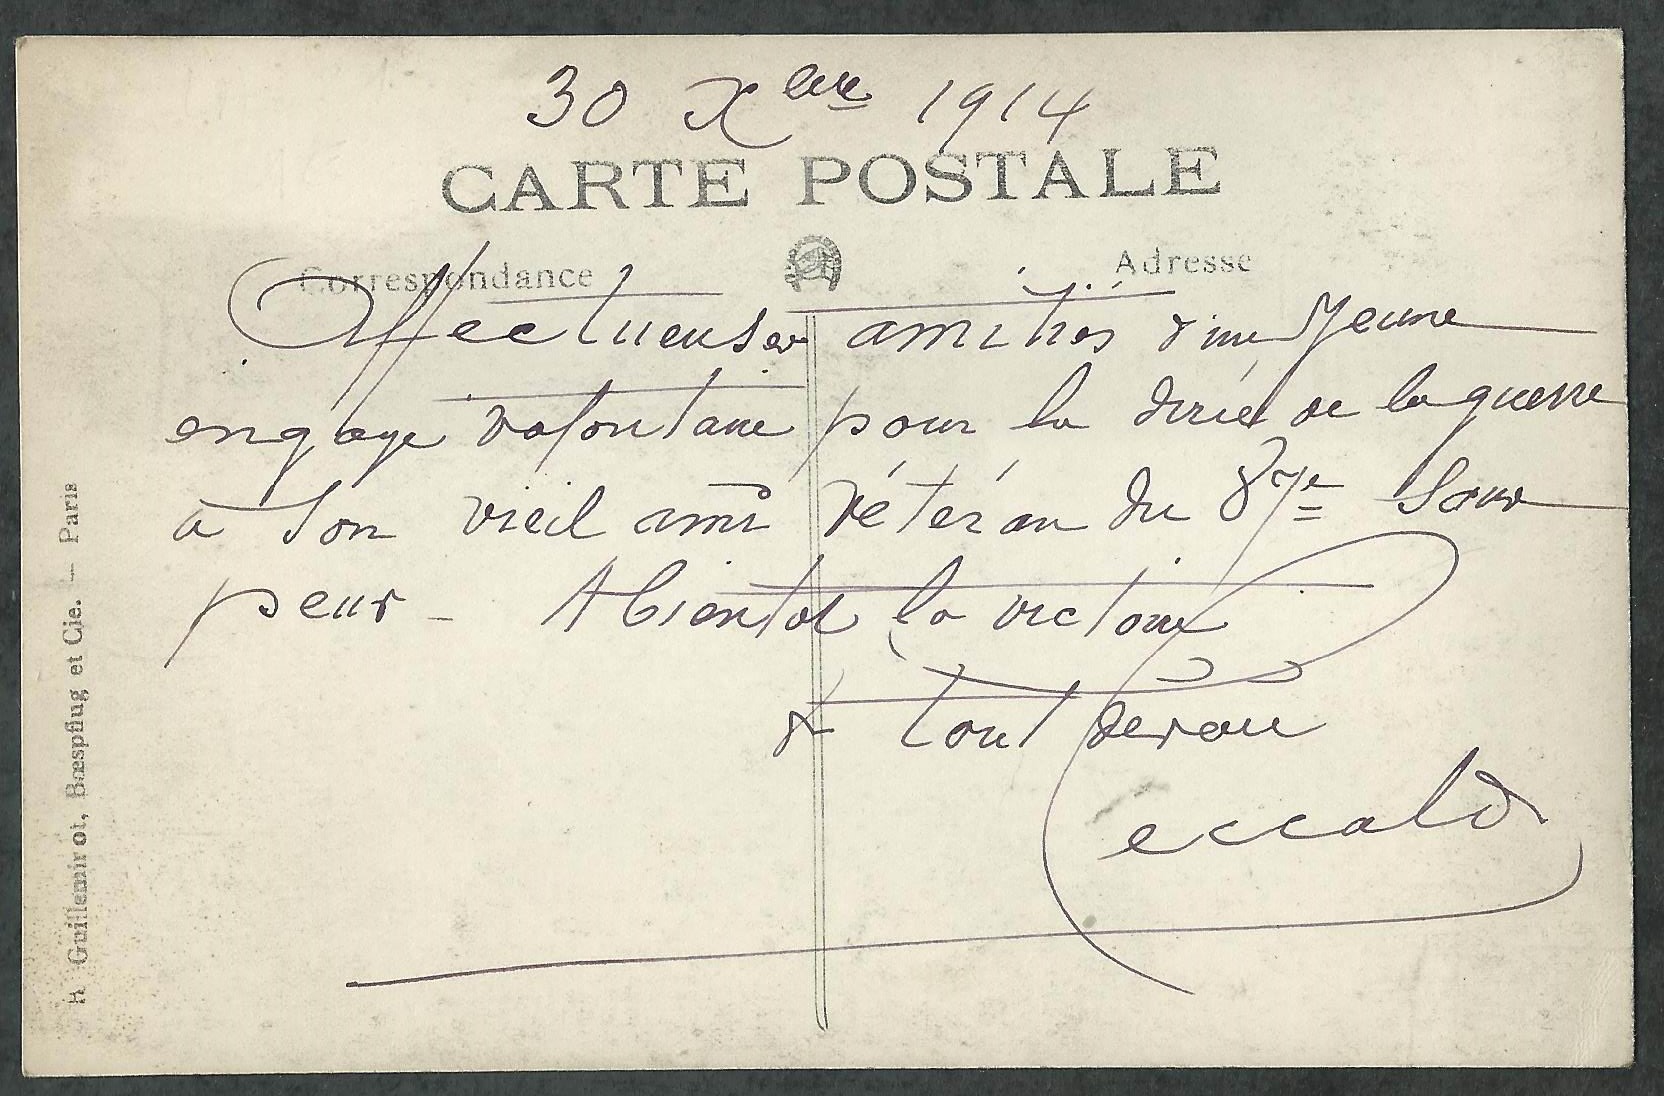 30 Xbre 1914
CARTE POSTALE
Correspondance
Adresse
Affectueuses amitiés d'un Jeune
engagé volontaire pour la durée de la guerre
à son vieil ami vétéran du 87e Sans
peur - A bientot la victoire
& tout dévoué
Ceccaldi
H. Guilleminot, Bœspflug et Cie. — Paris